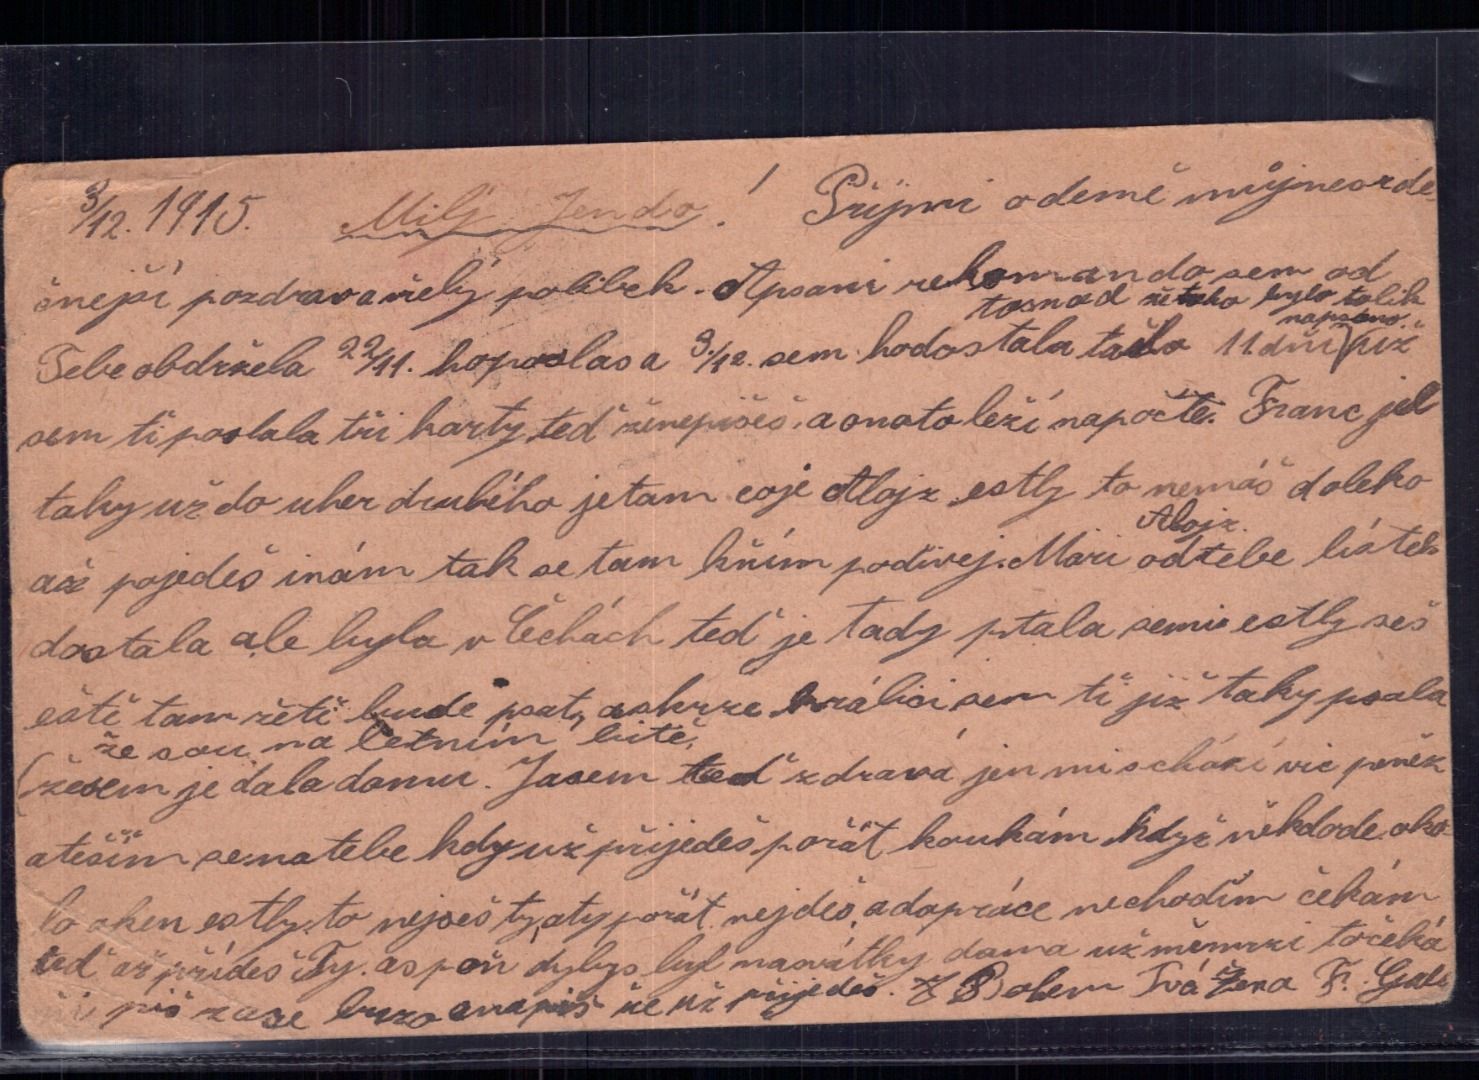 3/12. 1915. Milý Jendo! Přijmi odemě můjneorde-
čnejší pozdravavřelý polibek. Apsani rekomando sem od
tosnad žetoho bylo tolik
napsáno.
Tebe obdržela 22/11. hoposlas a 3/12. sem hodostala tašlo 11 dní) již
sem ti poslala tři karty, teď ženepišeš, a onato leží napočtě. Franc jel
taky už do uher druhého jetam coje Alojz estly to nemáš daleko
Alojz.
až pojedeš inám tak se tam kním podivej. Mari odtebe lístek
dostala ale byla v Čechách teď je tady ptala semie estly seš
eště tam žeti bude psat, askrze králici sem ti již taky psala
že sou na letním bitě,
(žesem je dala domu. Jasem teď zdravá jen mi schází vic peněz
atěším sena tebe kdy už přijedeš pořát koukám když někdode oko-
lo oken estly to nejseš ty, aty pořát nejdeš, adopráce nechodím čekám
teď až přídeš Ty. aspoň dybys byl nasvátky doma už měmrzi točeká
ní piš zase brzo anapiš že už přijedeš. Z Bohem Tvá žena F.